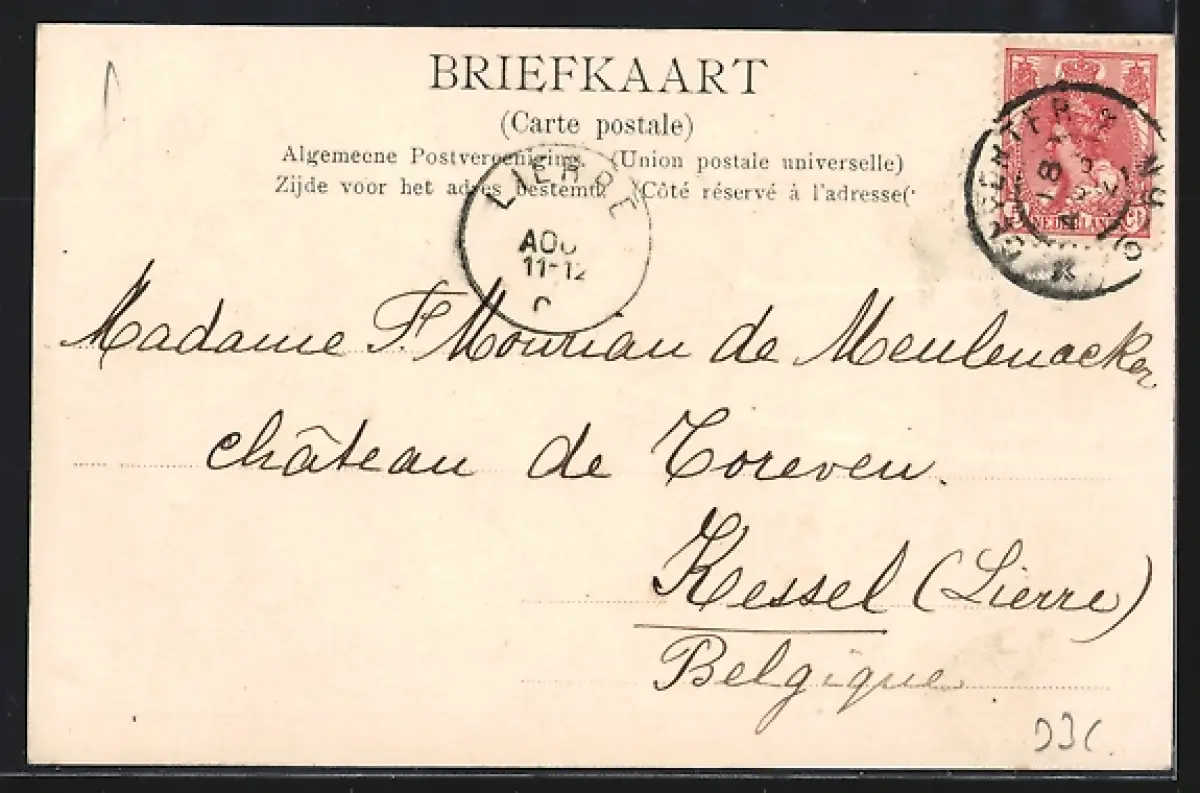 BRIEFKAART
(Carte postale)
Algemeene Postvereeniging. (Union postale universelle)
Zijde voor het adres bestemd. (Côté réservé à l'adresse(
LIERRE
AOU
11-12
DEVENTER
5 NEDERLAND Ct
Madame F. Mourian de Meulenacker
château de Toreven.
Kessel (Lierre)
Belgique